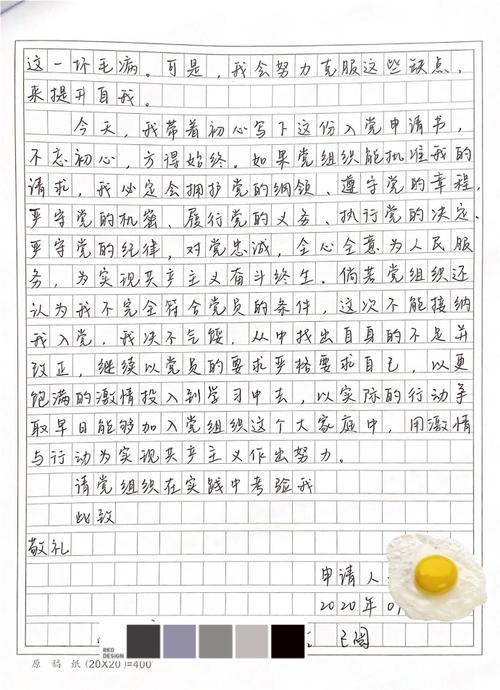 这一坏毛病。可是，我会努力克服这些缺点，
来提升自我。
今天，我带着初心写下这份入党申请书，
不忘初心，方得始终。如果党组织能批准我的
请求，我必定会拥护党的纲领、遵守党的章程，
严守党的机密、履行党的义务、执行党的决定、
严守党的纪律，对党忠诚，全心全意为人民服
务，为实现共产主义奋斗终生。倘若党组织还
认为我不完全符合党员的条件，这次不能接纳
我入党，我决不气馁，从中找出自身的不足并
改正，继续以党员的要求严格要求自己，以更
饱满的激情投入到学习中去，以实际的行动争
取早日能够加入党组织这个大家庭中，用激情
与行动为实现共产主义作出努力。
请党组织在实践中考验我
此致
敬礼
申请人
2020年0
RED
DESIGN
原稿纸(20X20)=400